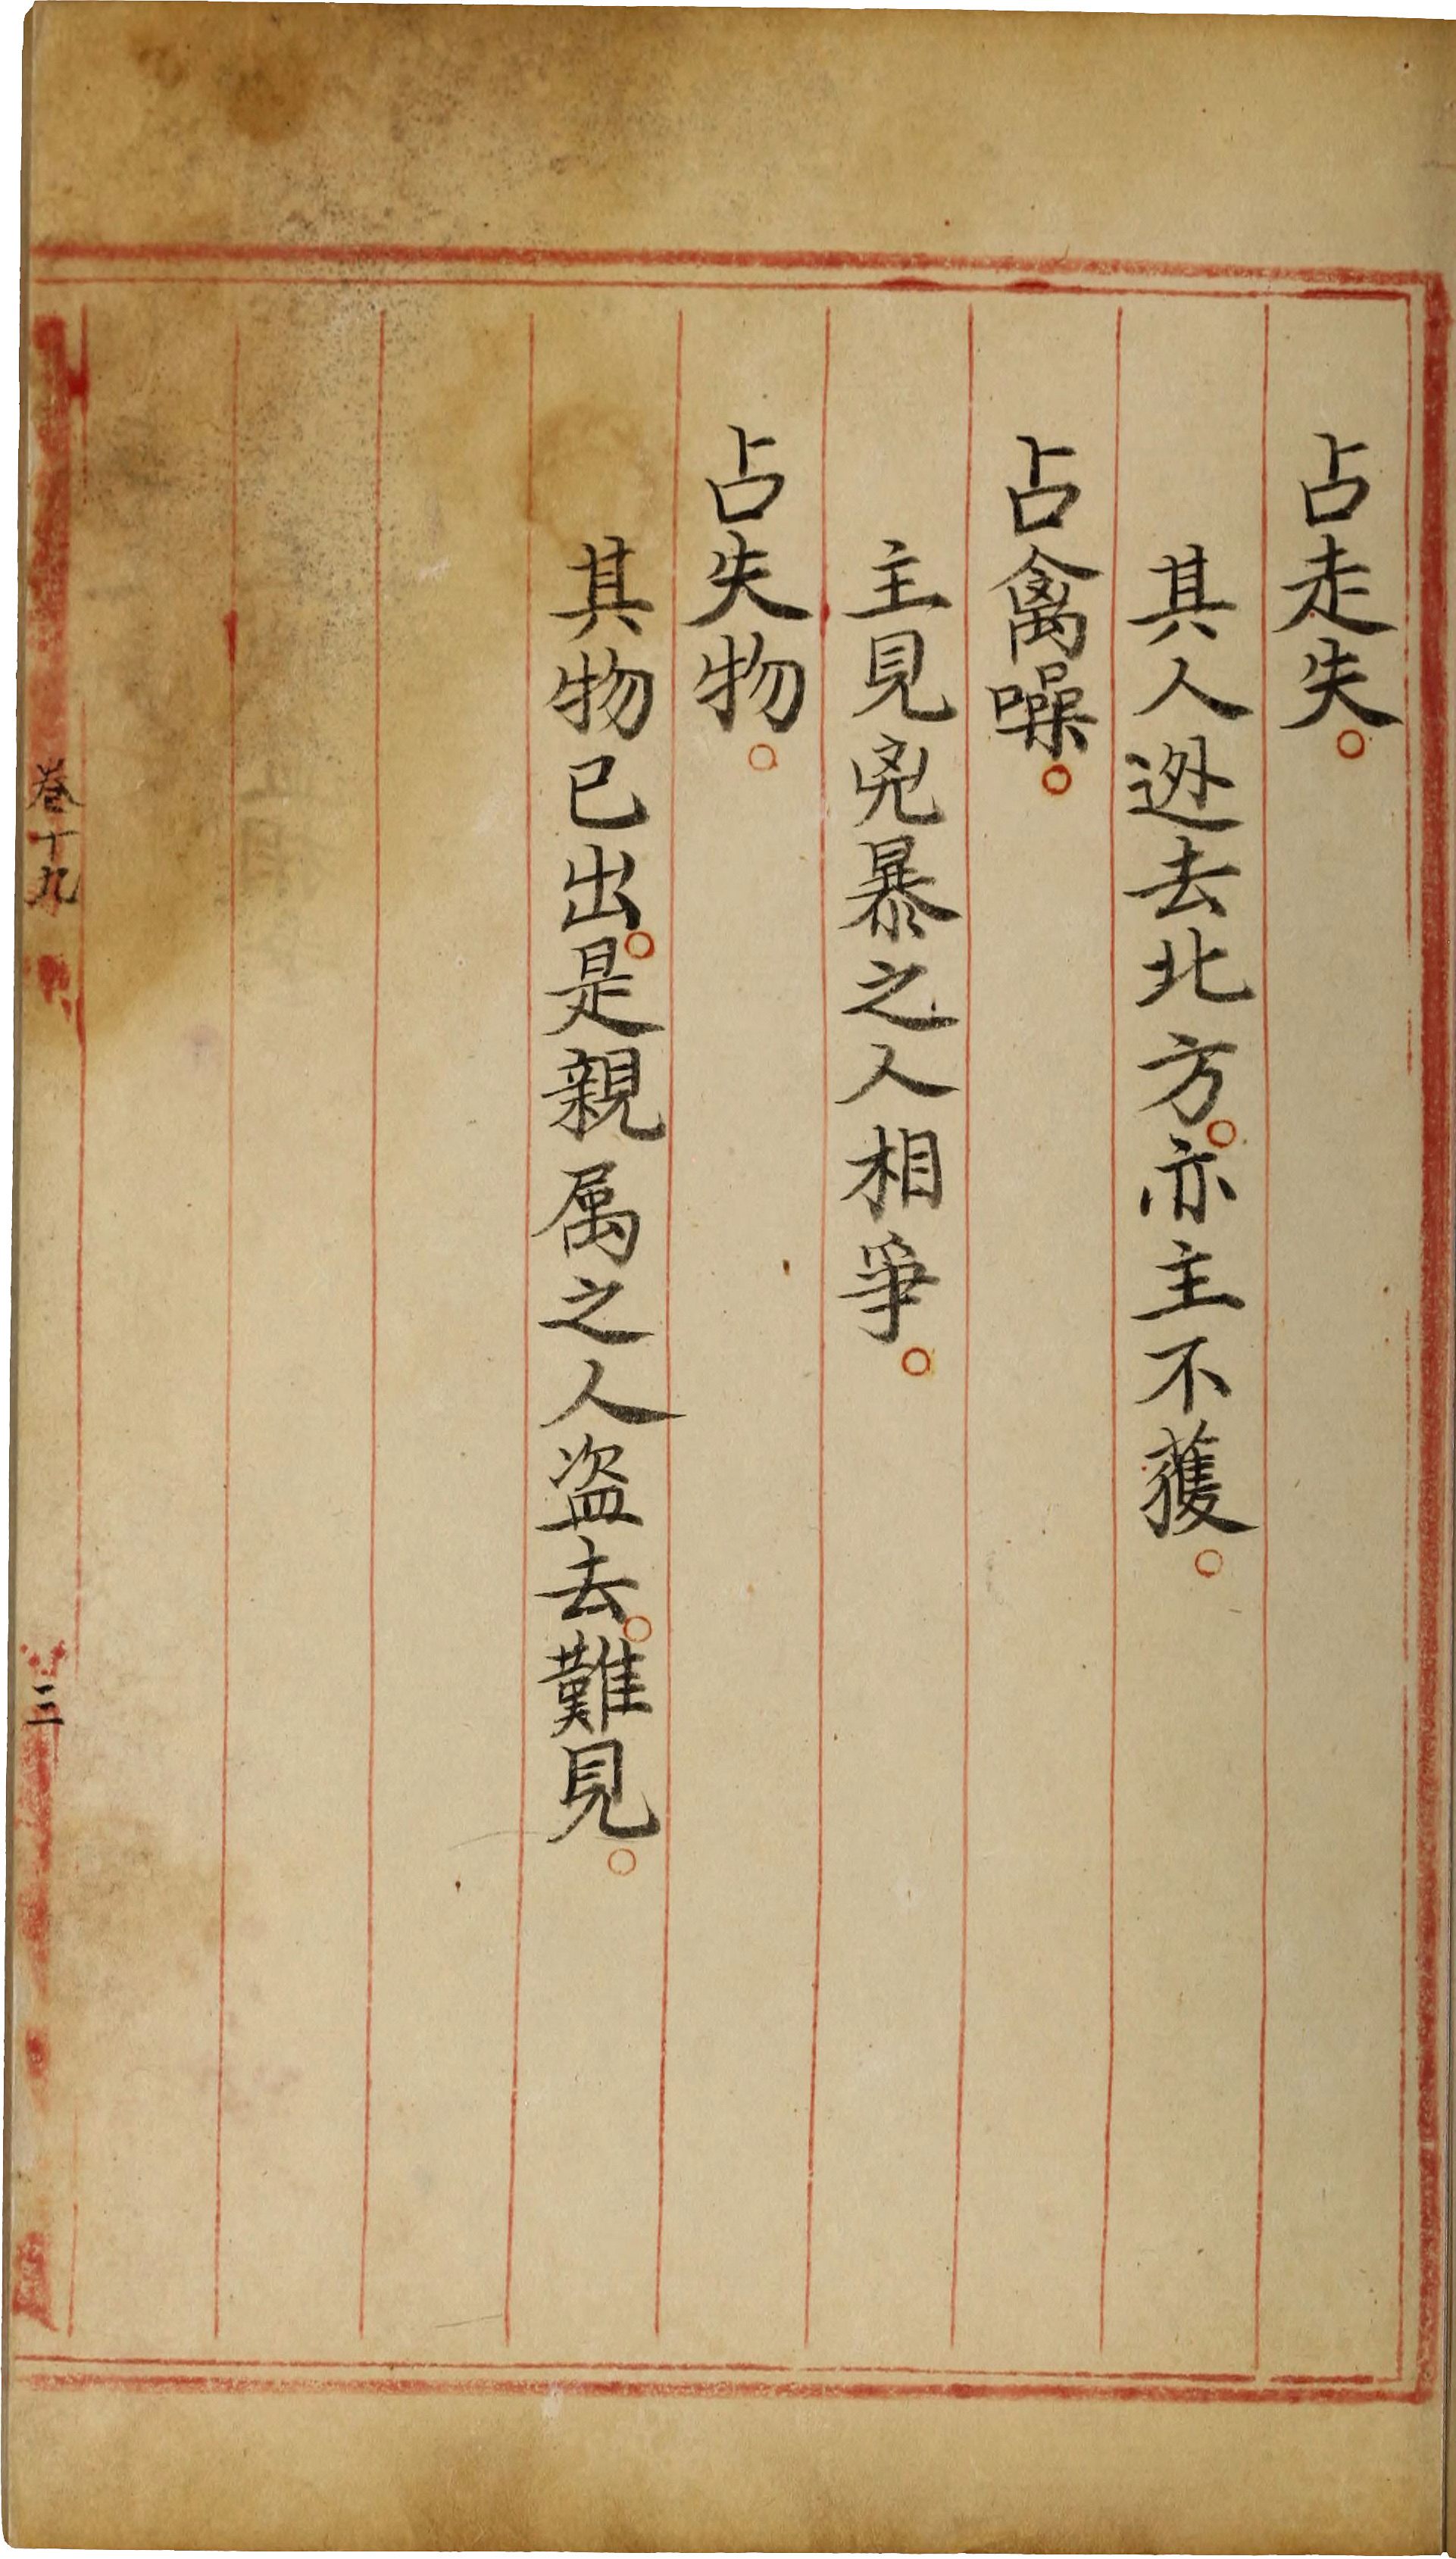 占走失。
其人迯去北方。亦主不獲。
占禽噪。
主見兇暴之人相爭。
占失物。
其物已出。是親属之人盗去。難見。
卷十九
三